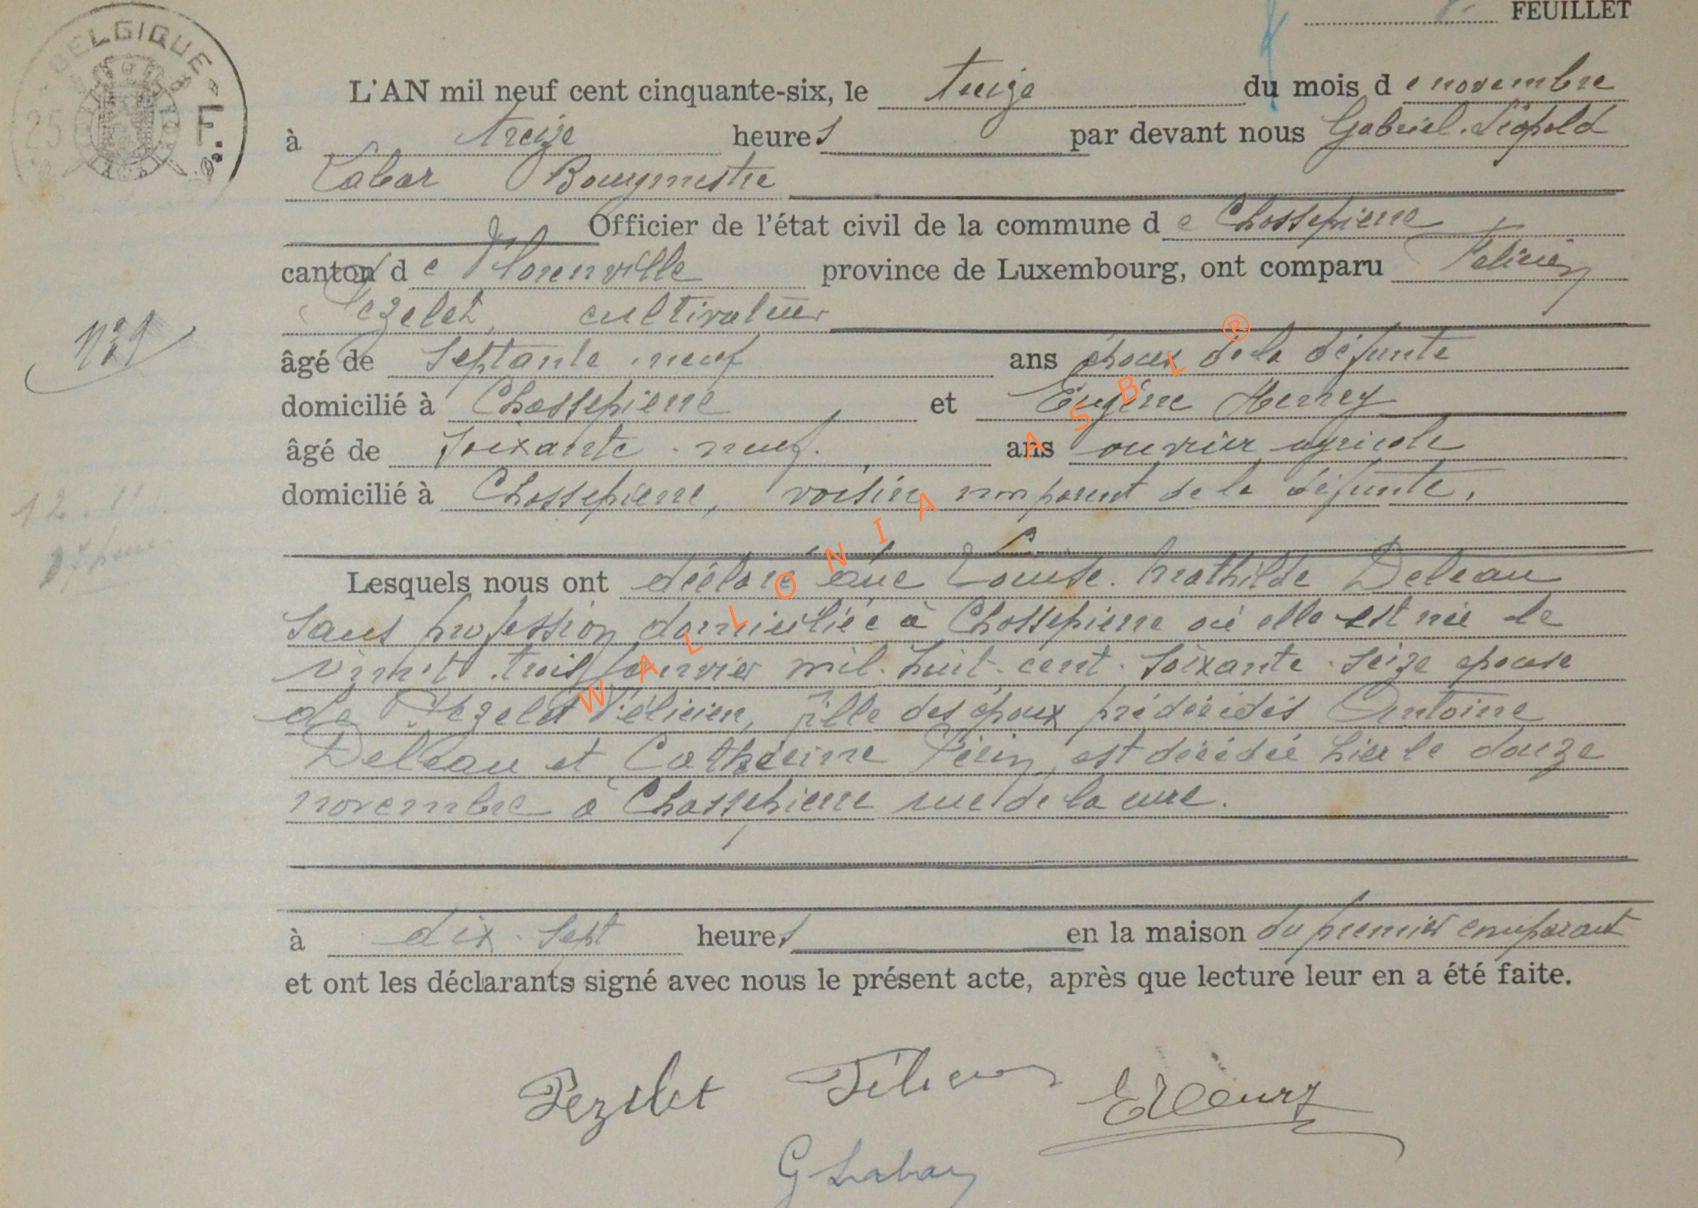 BELGIQUE
25 F.
FEUILLET
L'AN mil neuf cent cinquante-six, le treize du mois de novembre
à treize heures par devant nous Gabriel-Léopold
Labar Bourgmestre
Officier de l'état civil de la commune de Chassepierre
canton de Florenville province de Luxembourg, ont comparu Félicien
Pezelet, cultivateur
âgé de septante-neuf ans époux de la défunte
domicilié à Chassepierre et Eugène Henry
âgé de soixante-neuf. ans ouvrier agricole
domicilié à Chassepierre, voisin non parent de la défunte.
Lesquels nous ont déclaré que Louise-Mathilde Deleau
sans profession domiciliée à Chassepierre où elle est née le
vingt-trois janvier mil-huit-cent-soixante-seize épouse
de Pezelet Félicien, fille des époux prédécédés Antoine
Deleau et Catherine Périn, est décédée hier le douze
novembre à Chassepierre rue de la cure.
à dix-sept heures en la maison du premier comparant
et ont les déclarants signé avec nous le présent acte, après que lecture leur en a été faite.
Pezelet Félicien EHenry
G Labar
WALLONIA ASBL ®